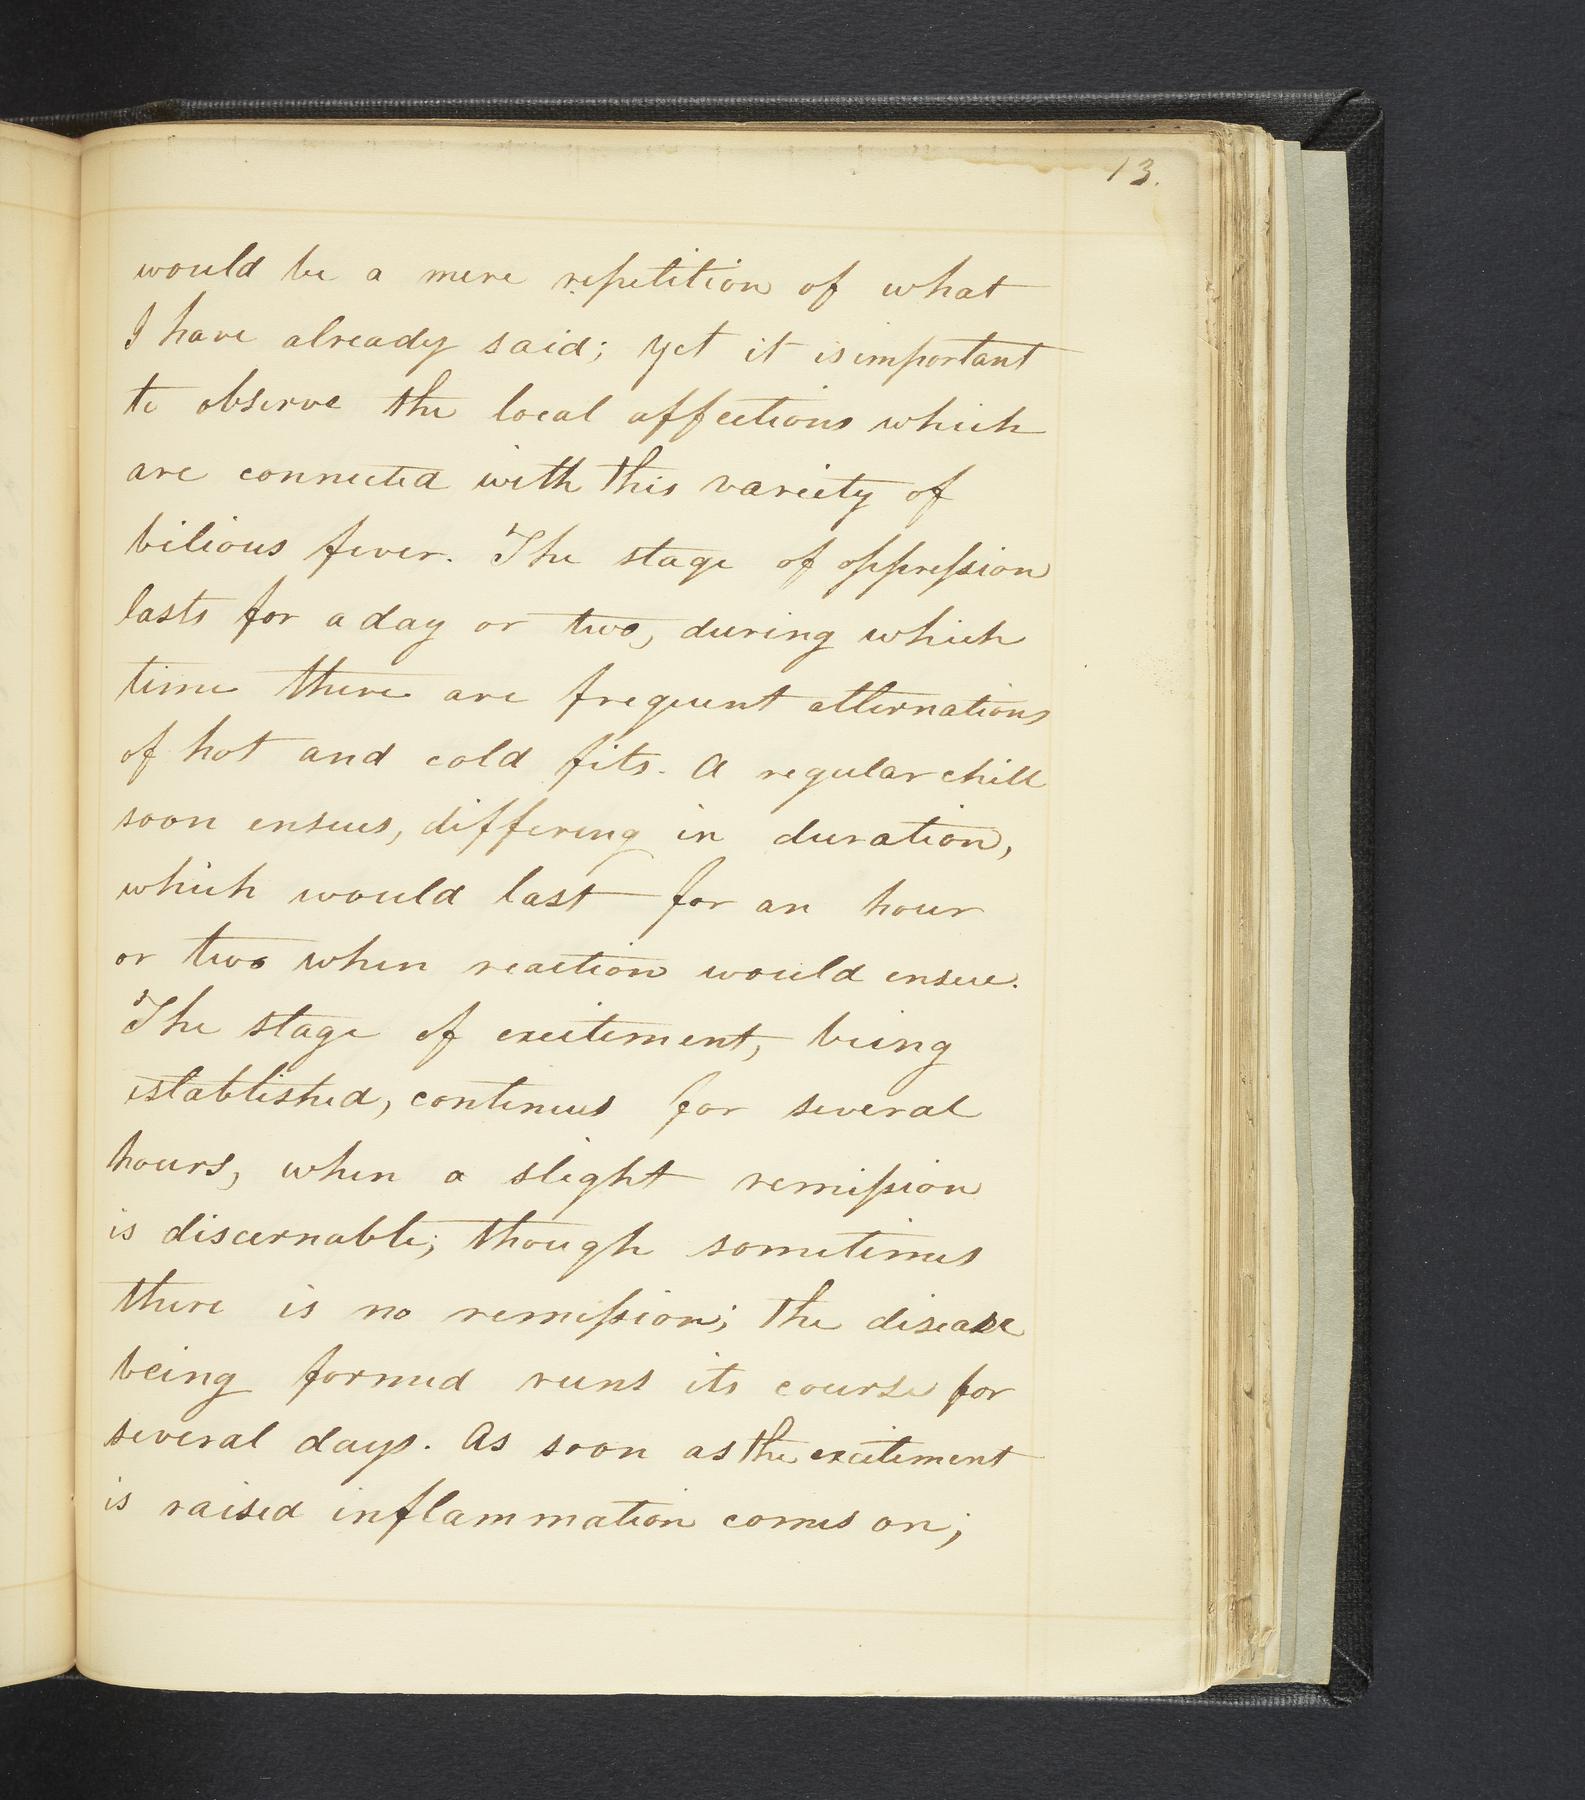 13.
would be a mere repetition of what
I have already said; yet it is important
to observe the local affections which
are connected with this vareity of
bilious fever. The stage of oppression
lasts for a day or two, during which
time there are frequent alternations
of hot and cold fits. A regular chill
soon ensues, differing in duration,
which would last for an hour
or two when reaction would ensue.
The stage of excitement, being
established, continues for several
hours, when a slight remission
is discernable; though sometimes
there is no remission; the disease
being formed runs its course for
several days. As soon as the excitement
is raised inflammation comes on;